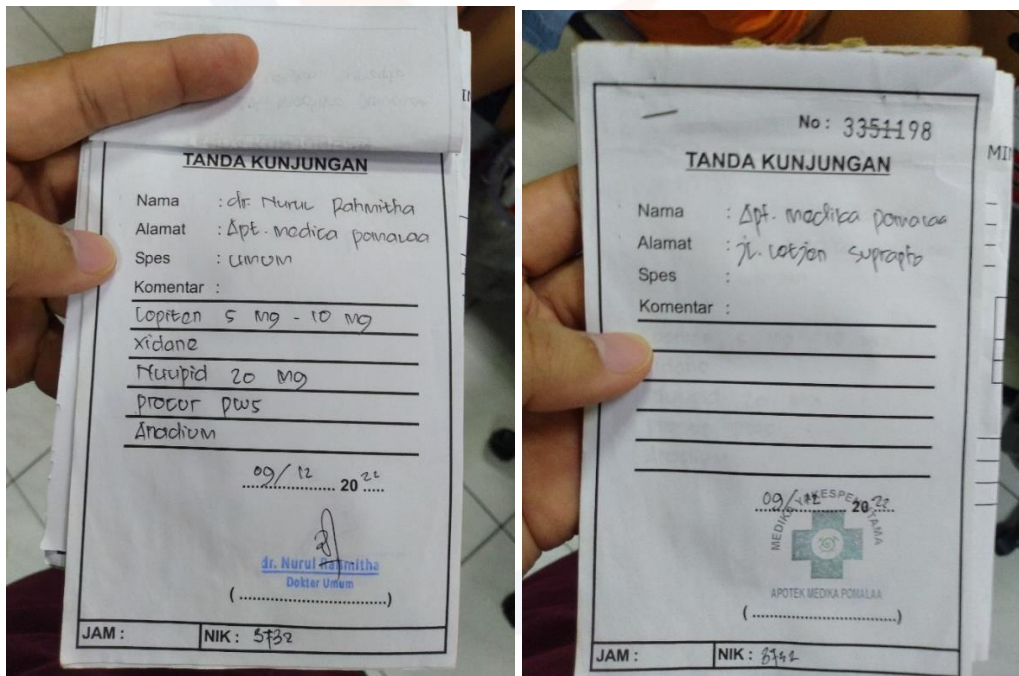 TANDA KUNJUNGAN
Nama : dr. Nurul Rahmitha
Alamat : Apt. medica pomalaa
Spes : umum
Komentar :
Lopiten 5 mg - 10 mg
Xidane
Nuripid 20 mg
Procur plus
Anadium
09/12 2022
dr. Nurul Rahmitha
Dokter Umum
(....................................)
JAM : NIK : 3732
No : 3351198
TANDA KUNJUNGAN
Nama : Apt. medika pomalaa
Alamat : jl. Letjen Suprapto
Spes :
Komentar :
09/12 2022
APOTEK MEDIKA POMALAA
(....................................)
JAM : NIK :